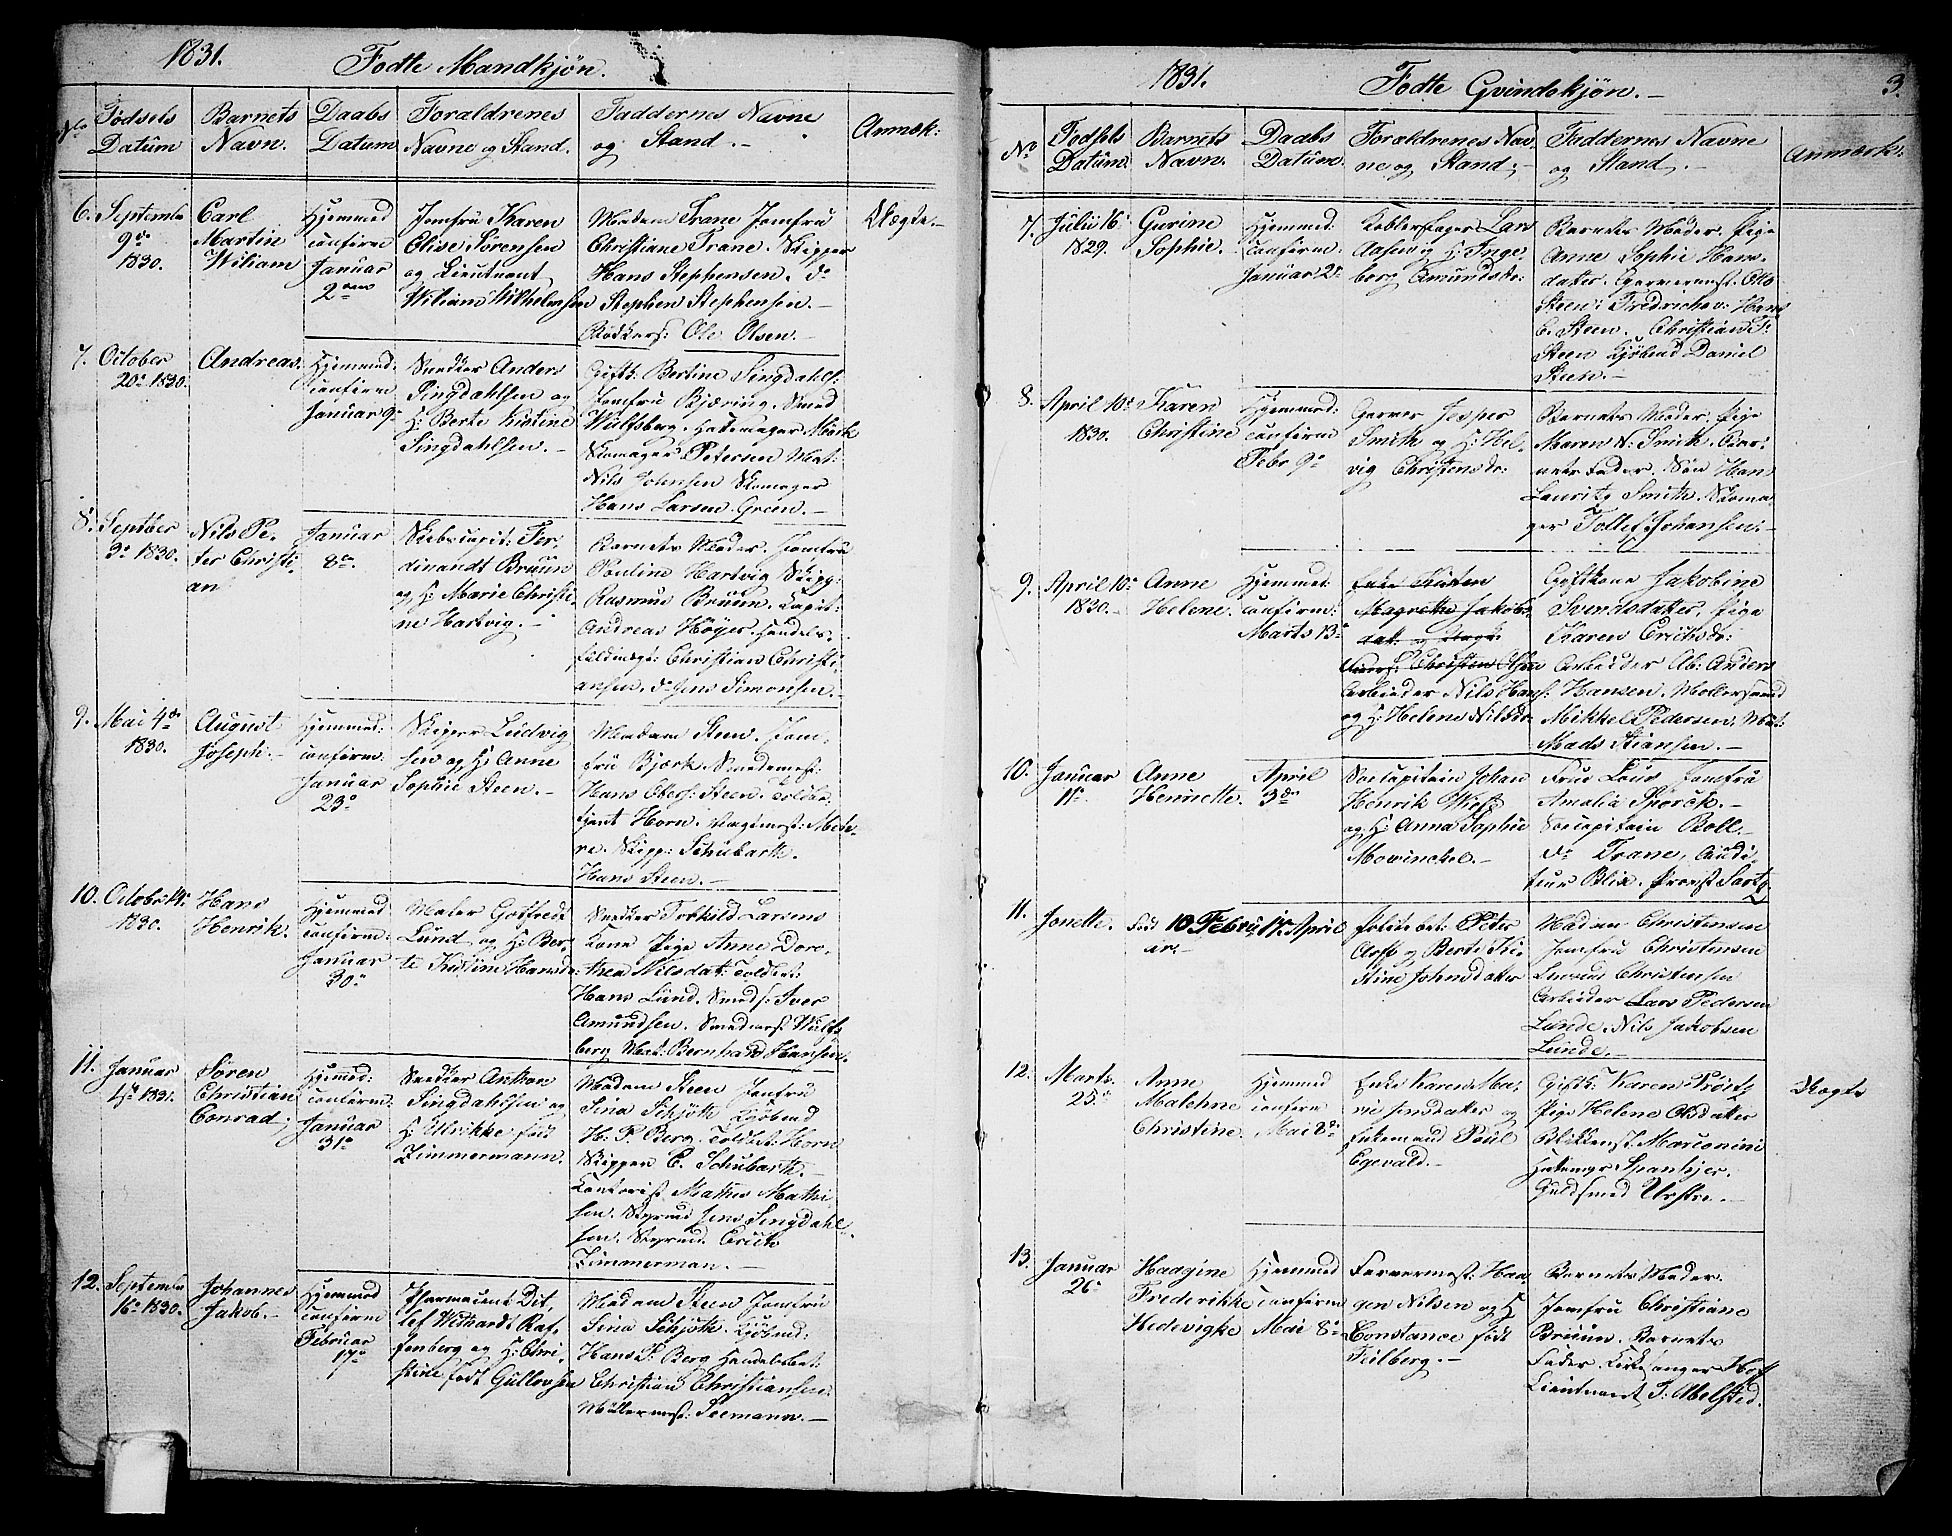 1831.
Fødte Mandkjøn.
No
Fødsels
Datum
Barnets
Navn.
Daabs
Datum
Foraldrenes
Navne og Stand.
Faddernes Navne
og Stand.-
Anmæk:
6. Septembr
9de
1830.
Carl
Martin
Wiliam
Hjemmed
confirm
Januar
2den
Jomfru Karen
Elise Sørensen
og Lieutnant
Wiliam Wilhelmsen
Madam Trane Jomfru
Christiane Trane. Skipper
Hans Stephensen. do
Stephen Stephensen.-
Bødkers: Ole Olsen.-
Uægte.-
7. October
20de 1830.
Andreas.
Hjemmed.
confirm
Januar 9de
Snedker Anders
Singdahlsen og
H: Berte Kistine
Singdahlsen.-
Giftk: Bertine Singdahls:
Jomfru Bjæring. Smed
Wulfsberg. Hattemager Mørk
Skomager Petersen Mat:
Nils Johnsen Skomager
Hans Larsen Groen.-
8. Septber
3de 1830.
Nils Pe-
ter Christi-
an
Januar
8de
Skibscapit: Fer-
dinandt Bruun
og H: Marie Christi-
ne Hartvig.-
Barnets Moder. Jomfru
Pauline Hartvig Skipp:
Rasmus Bruun. Capit:
Andreas Høyer. Handels-
fuldmægt: Christian Christi-
ansen. do Jens Simonsen.-
9. Mai 4de
1830.
August
Joseph.-
Hjemmed:
confirm:
Januar
23de
Skipper Ludvig
sen og H: Anne
Sophie Steen.-
Madam Steen. Jom-
fru Bjørk Smedemest:
Hans Steen. Toldbe-
tjent Horn.
Skipp: Schubarth.
Hans Steen.-
10. Octobr 14de
1830.
Hans
Henrik.
Hjemmed
confirm:
Januar
30de
Maler Gotfredt
Lund og H: Ber-
te Kistine Hansda:
Snedker Torkild Larsens
Kone Pige Anne Doro-
thea Nilsdat: Toldbet:
Hans Lund. Smeds: Iver
Amundsen. Smedmest: Wulfs-
berg Mat: Bernhard Hansen.
11. Januar
4de 1831.
Søren
Christian
Conrad;
Hjemmed:
confirm:
Januar
31de
Snedker Anthon
Singdahlsen og
H: Ulrikke født
Zimmermann.
Madam Steen Jomfru
Sina Schjøth Kjøbmd
H: P. Berg. Toldbet: Horn
Skipper C. Schubarth.-
Contorist Mathis Mathi-
sen. Jens Singdahl-
sen.
Zimmerman.-
12. Septembr
16de 1830.
Johannes
Jakob.-
Hjemmed
confirm
Februar
17de
Pharmaceut Dit-
lef Withardt Raf-
fenberg og H: Chri-
stine født Gullovsen
Madam Steen Jomfru
Sina Schjøth. Kjøbmd:
Hans P: Berg Handelsbet:
Christian Christiansen.
Møllermest: Seemann.-
1831.
Fødte Qvindekjøn.-
3.
No
Fødsels
Datum.
Barnets
Navn.
Daabs
Datum.
Foraldrenes Nav-
ne og Stand;-
Faddernes Navne
og Stand.-
Anmærk:
7. Julii 16de
1829.
Gurine
Sophie.-
Hjemmed:
confirm:
Januar 2de
Kobberslager Lars
Aasen og H: Inge-
borg Amundsdr:
Barnets Moder. Pige
Anne Sophie Hans-
datter. Garvermest: Otto
Steen: Fredrichsv: Hans
C. Steen. Christian F:
Steen Kjøbmd Daniel
Steen.-
8. April 10de
1830.
Karen
Christine
Hjemmed:
confirm
Febr 9de
Garver Jesper
Smith og H: Hel-
vig Christensdr:
Barnets Moder. Pige
Maren N: Smith. Bar-
nets Fader. Søn Hans
Lauritz Smith. Skoma
ger Tollef Johansen.-
9. April 10de
1830.-
Anne
Helene.
Hjemmed:
confirm:
Marts 13de
Enke Kisten
Magrethe Jakobs-
datt: og Unge
Christen Olsen
Arbeider Nils Hans:
og H: Helene Nilsdr
Giftkone Jakobine
Svendsdatter. Pige
Karen Erichsdr:
Arbeider Ab: Anders
Hansen. Møllersvend
Mikkel Pedersen. Mat:
Mads Stiansen.-
10. Januar
11te
Anne
Henriette.
April
3den
Søcapitain Johan
Henrik West
og H: Anna Sophie
Mowinckel.-
Frue Laus Jomfru
Amalia Sporck.-
Søcapitain Boll.-
do Trane, Audi-
teur Blix. Provst Sartz
11. Jonette.
Fød 10 Febru-
ar.-
17de April
Politiebet: Peter
Aroff og Berte Ki-
stine Johnsdatter
Madam Christensen
Jomfru Christensen
Christensen
Arbeider Lars Pedersen
Lunde. Nils Jakobsen
Lunde.-
12. Marts
25de
Anne
Malehne
Christine.
Hjemmed
confirm
Mai 8de
Enke Karen Ma-
rie Jensdatter og
Enkemand Paul
Egevald.-
Giftk: Karen Prøitz
Pige Helene Olsdatter
Blikkensl: Marconini
Hatmgr: Spanhjer.
Guldsmed Urstre.-
Uægte
13. Januar
26de
Haagine
Frederikke
Hedevigke
Hjemmed
confirm
Mai 8de
Farvermest: Haa-
gen Nilsen og H
Constance født
Feilberg.-
Barnets Moder.
Jomfru Christiane
Bruun. Barnets
Fader. Kirkesanger Hoff
Lieutnant T: Melsted.